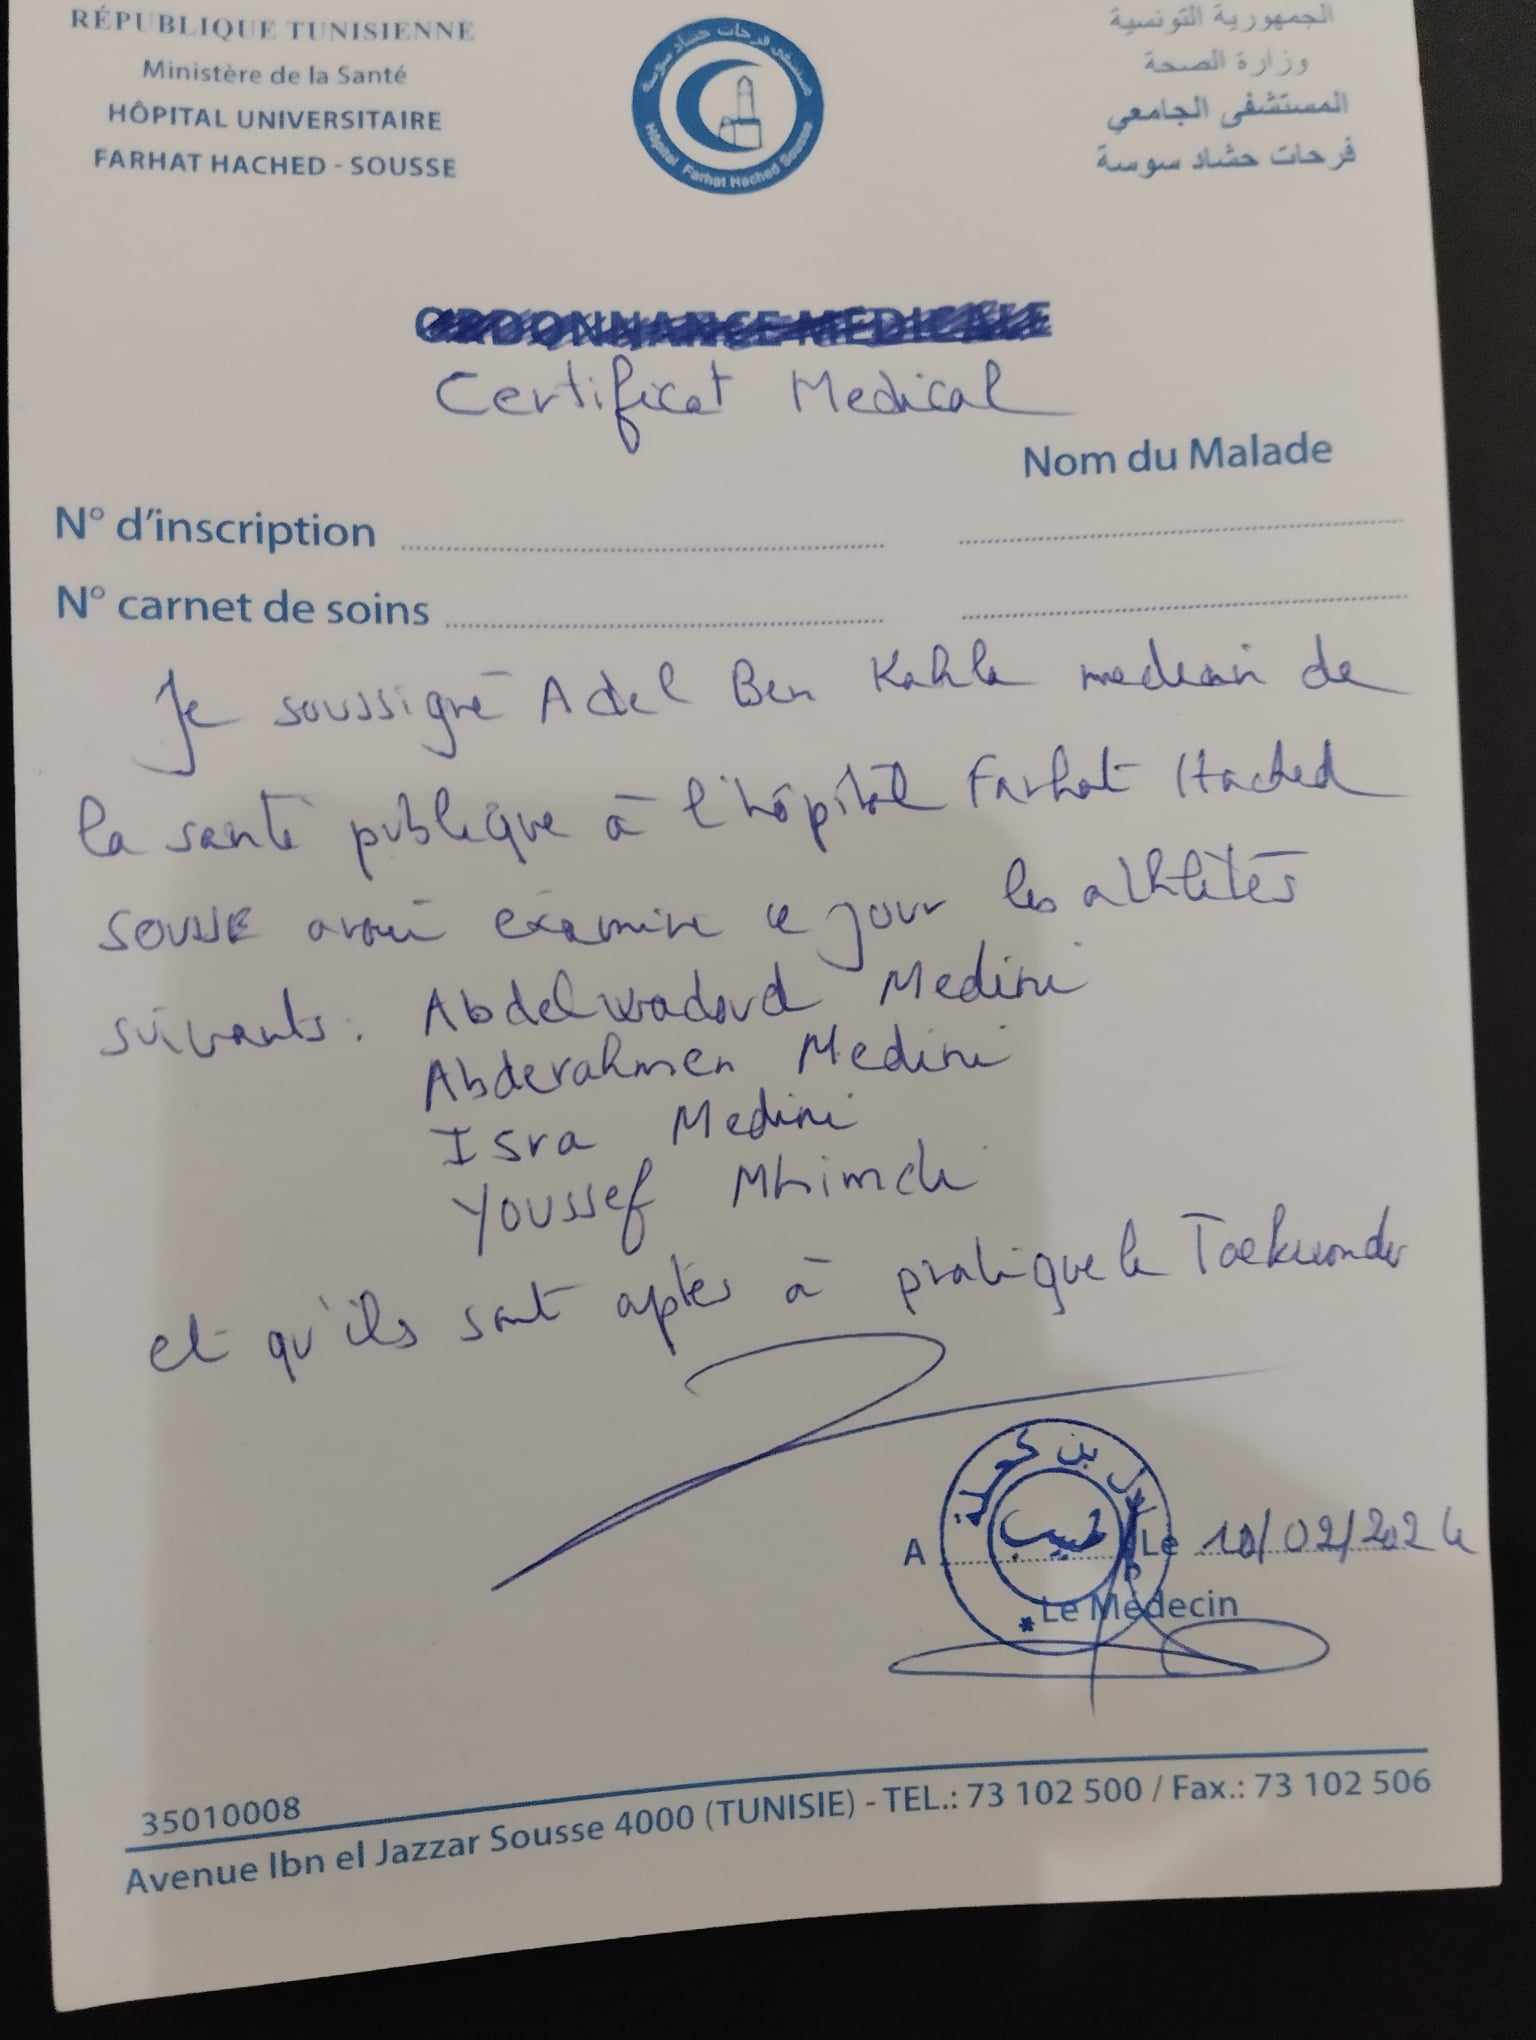 RÉPUBLIQUE TUNISIENNE
Ministère de la Santé
HÔPITAL UNIVERSITAIRE
FARHAT HACHED - SOUSSE
مستشفى فرحات حشاد سوسة
Hôpital Farhat Hached Sousse
الجمهورية التونسية
وزارة الصحة
المستشفى الجامعي
فرحات حشاد سوسة
ORDONNANCE MEDICALE
Certificat Medical
Nom du Malade
N° d'inscription
N° carnet de soins
Je soussigné Adel Ben Kahla medecin de
la santé publique à l'hôpital Farhat Hached
SOUSSE avoir examiné ce jour les athlétés
suivants: Abdelwadoud Medini
Abderahmen Medini
Isra Medini
Youssef
et qu'ils sont aptes à pratique le Taekwondo
بن
طبيب
A Le 10/02/2024
Le Médecin
35010008
Avenue Ibn el Jazzar Sousse 4000 (TUNISIE) - TEL.: 73 102 500 / Fax.: 73 102 506